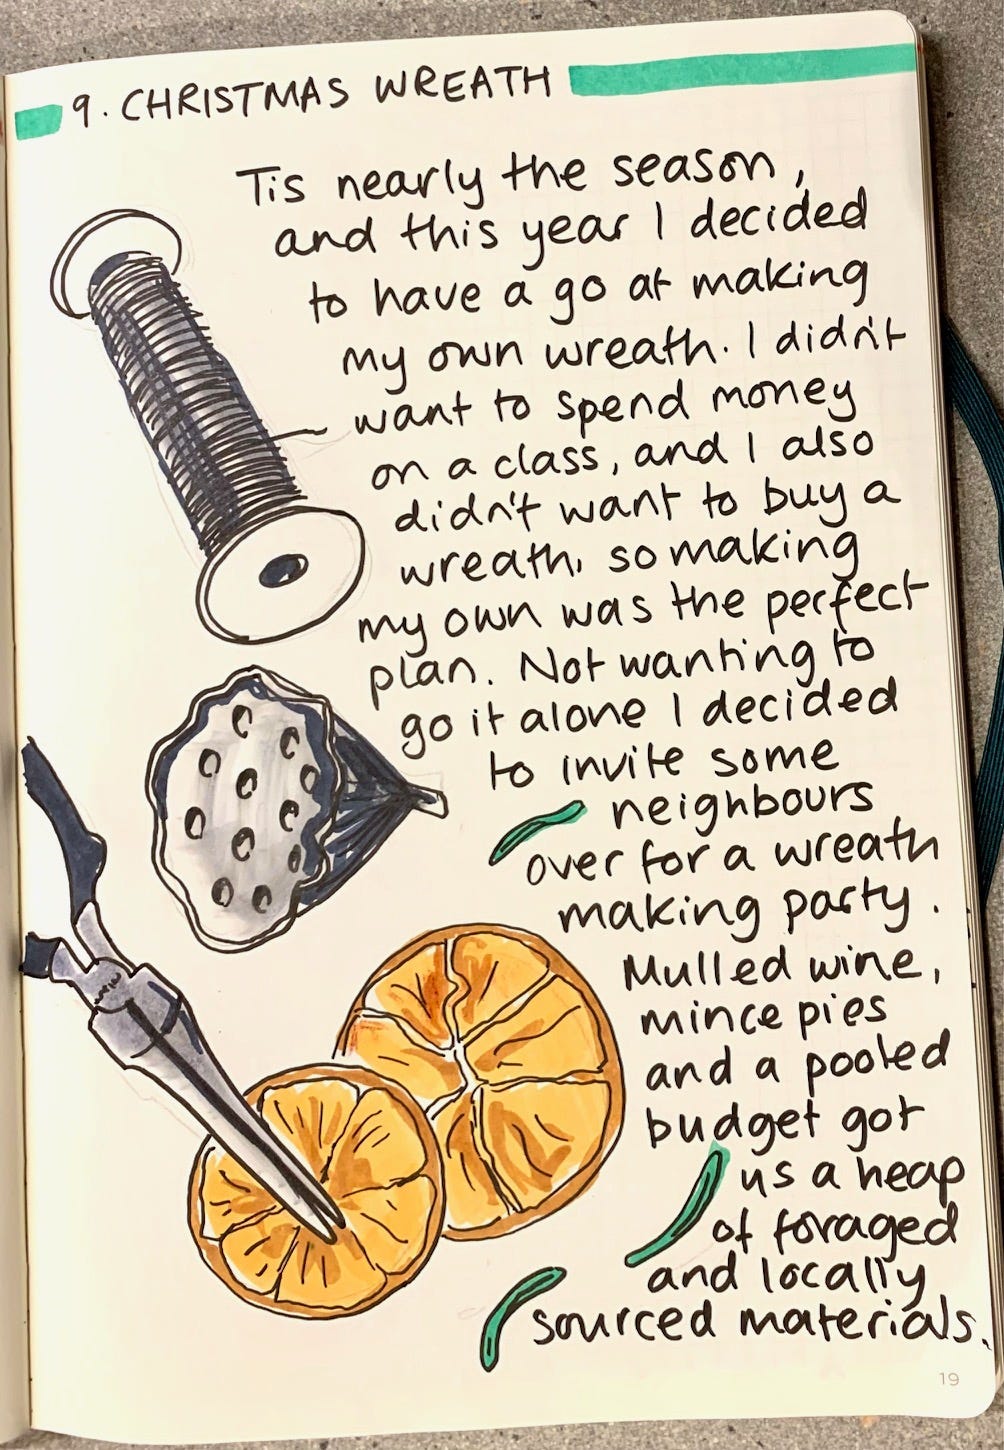 9. CHRISTMAS WREATH
Tis nearly the season,
and this year I decided
to have a go at making
my own wreath. I didn't
want to spend money
on a class, and I also
didn't want to buy a
wreath, so making
my own was the perfect
plan. Not wanting to
go it alone I decided
to invite some
neighbours
over for a wreath
making party.
Mulled wine,
mince pies
and a pooled
budget got
us a heap
of foraged
and locally
sourced materials.
19